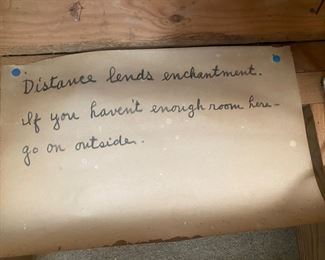 Distance lends enchantment.
If you haven't enough room here-
go on outside.